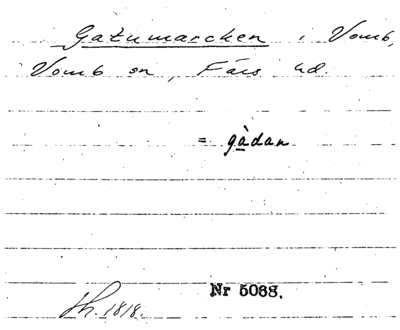 Gatumarcken, Vomb,
Vomb sn, Färs hd.
= gàdan
Nr 5068.
Th. 1818.